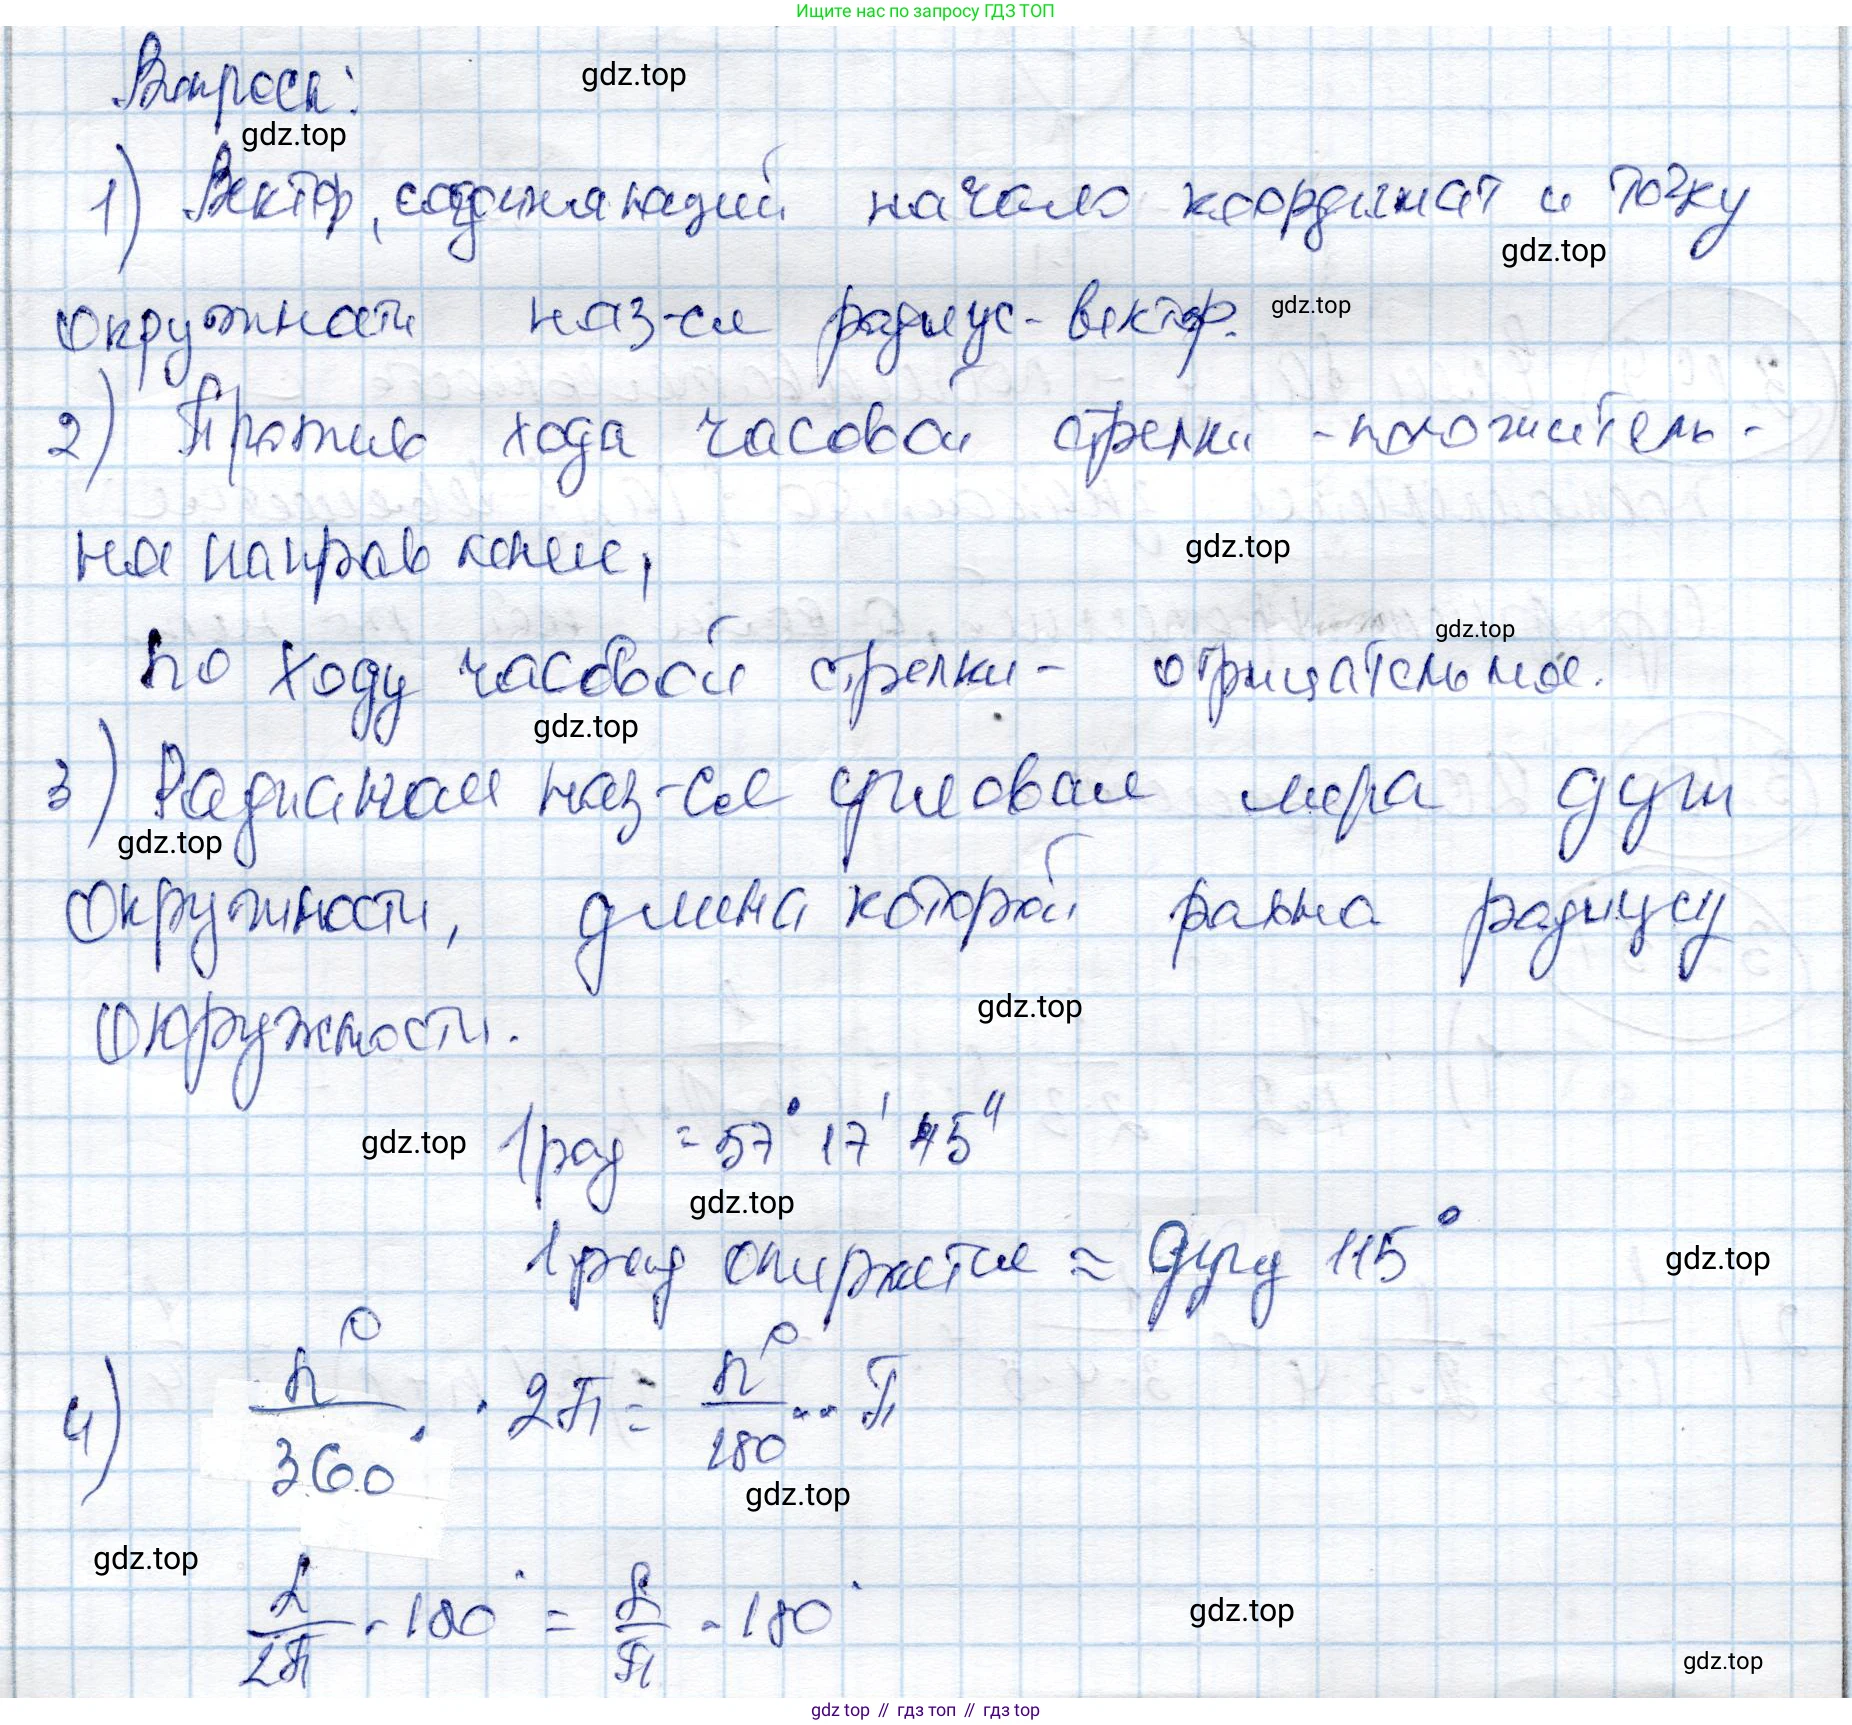 Ищите нас по запросу ГДЗ ТОП
Вопросы:
gdz.top
gdz.top
1) Вектор, соединяющий начало координат и точку
gdz.top
окружности наз-ся радиус-вектор.
gdz.top
2) Против хода часовой стрелки - положитель-
ное направление,
gdz.top
gdz.top
по ходу часовой стрелки - отрицательное.
gdz.top
3) Радианом наз-ся угловая мера дуги
gdz.top
окружности, длина которой равна радиусу
окружности.
gdz.top
1 рад = 57° 17' 45"
gdz.top
gdz.top
1 рад опирается ≈ дугу 115°
gdz.top
4) n°/360° · 2π = n°/180° · π
gdz.top
gdz.top
α/2π · 180° = α/π · 180°
gdz.top
gdz.top
gdz top // гдз топ // гдз top